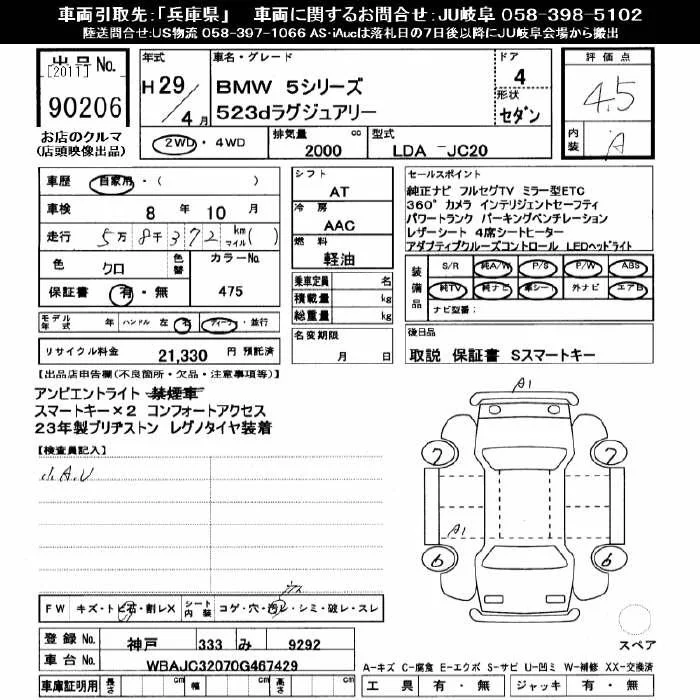 車両引取先:「兵庫県」　車両に関するお問合せ:JU岐阜 058-398-5102
陸送問合せ:US物流 058-397-1066 AS･iAucは落札日の7日後以降にJU岐阜会場から搬出
出品No.
[2011]
90206
お店のクルマ
(店頭映像出品)
年式
H29/4月
車名・グレード
BMW 5シリーズ
523dラグジュアリー
ドア
4
形状
セダン
評価点
4.5
内装
A
2WD・4WD
排気量 cc
2000
型式
LDA －JC20
車歴 自家用・( )
車検 8 年 10 月
走行 5万8千372 km マイル( )
色 クロ
色替
カラーNo
475
保証書 有・無
モデル年式 年 ハンドル 左 右 ディーラー・並行
リサイクル料金 21,330 円 預託済
シフト
AT
冷房
AAC
燃料
軽油
乗車定員 名
積載量 kg
総重量 kg
名変期限
月 日
セールスポイント
純正ナビ フルセグTV ミラー型ETC
360° カメラ インテリジェントセーフティ
パワートランク パーキングベンチレーション
レザーシート 4席シートヒーター
アダプティブクルーズコントロール LEDヘッドライト
装備品
S/R 純A/W P/S P/W ABS
純TV 純ナビ 革シート 外ナビ エアB
ナビ型番:
後日品
取説 保証書 Sスマートキー
【出品店申告欄(不良箇所・欠品・注意事項等)】
アンビエントライト 禁煙車
スマートキー×2 コンフォートアクセス
23年製ブリヂストン レグノタイヤ装着
【検査員記入】
小A.U
A1
7
7
A1
6
6
スペア
FW キズ・トビ石・割レX
シート内装 コゲ・穴・汚レ・シミ・破レ・スレ
ウス
登録No. 神戸 333 み 9292
車台No. WBAJC32070G467429
車庫証明用 長さ cm 幅 cm 高さ cm
A-キズ C-腐食 E-エクボ S-サビ U-凹ミ W-補修 XX-交換済
工具 有・無 ジャッキ 有・無